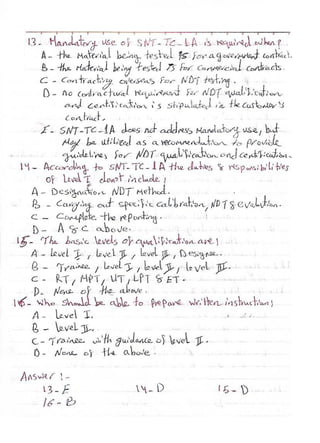 13- Mandatory use of SNT-TC-1A is required when?
A- the Material being tested is for a government contract.
B- the Material being tested is for Commercial contracts.
C- Contracting overseas for NDT testing.
D- no contractural requirement for NDT qualification
and certification is stipulated in the customer's
contract.
E- SNT-TC-1A does not address Mandatory use, but
May be utilized as a recommendation to provide
guidelines for NDT qualification and certification.
14- According to SNT-TC-1A the duties & responsibilities
of level I don't include;
A- Designation NDT Method.
B- Carrying out specific Calibration, NDT & evalution.
C- Complete the reporting.
D- A & C above.
15- The basic levels of qualification are;
A- level I, level II, level III, Designee.
B- Trainee, level I, level II, level III.
C- RT, MPT, UT, LPT & ET.
D. None of the above.
16- Who should be able to prepare written instruction;
A- Level I.
B- level II.
C- Trainee with guidance of level II.
D- None of the above.
Answer:-
13-E 14-D 15-D
16-B